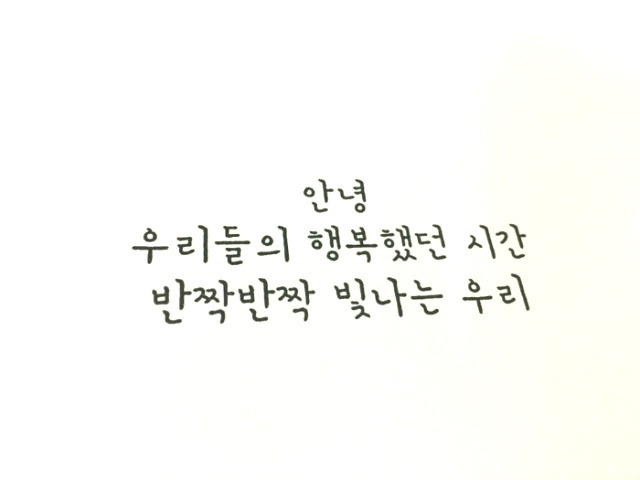 안녕
우리들의 행복했던 시간
반짝반짝 빛나는 우리